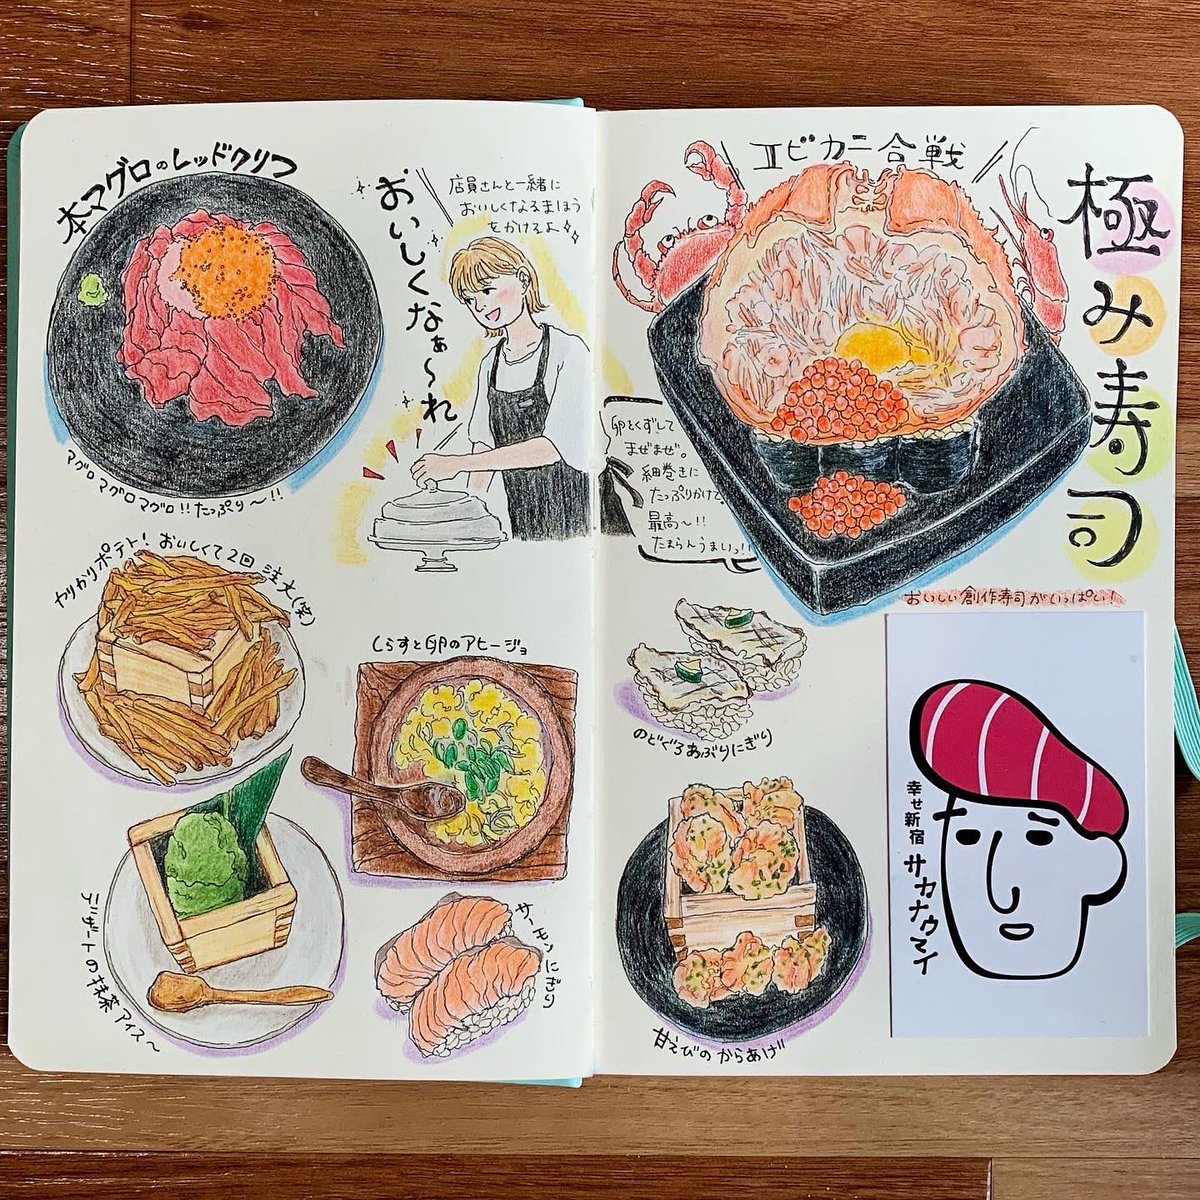 本マグロのレッドクリフ
マグロマグロマグロ!!たっぷり〜!!
店員さんと一緒に
おいしくなるまほう
をかけるよ
おいしくなぁ〜れ
カリカリポテト!おいしくて2回注文(笑)
しらすと卵のアヒージョ
デザートの抹茶アイス〜
サーモンにぎり
エビカニ合戦
極み寿司
卵をくずして
まぜまぜ。
細巻きに
たっぷりかけて
最高〜!!
たまらんうまいっ!!
おいしい創作寿司がいっぱい!
のどぐろあぶりにぎり
甘えびのからあげ
幸せ新宿
サカナウマイ